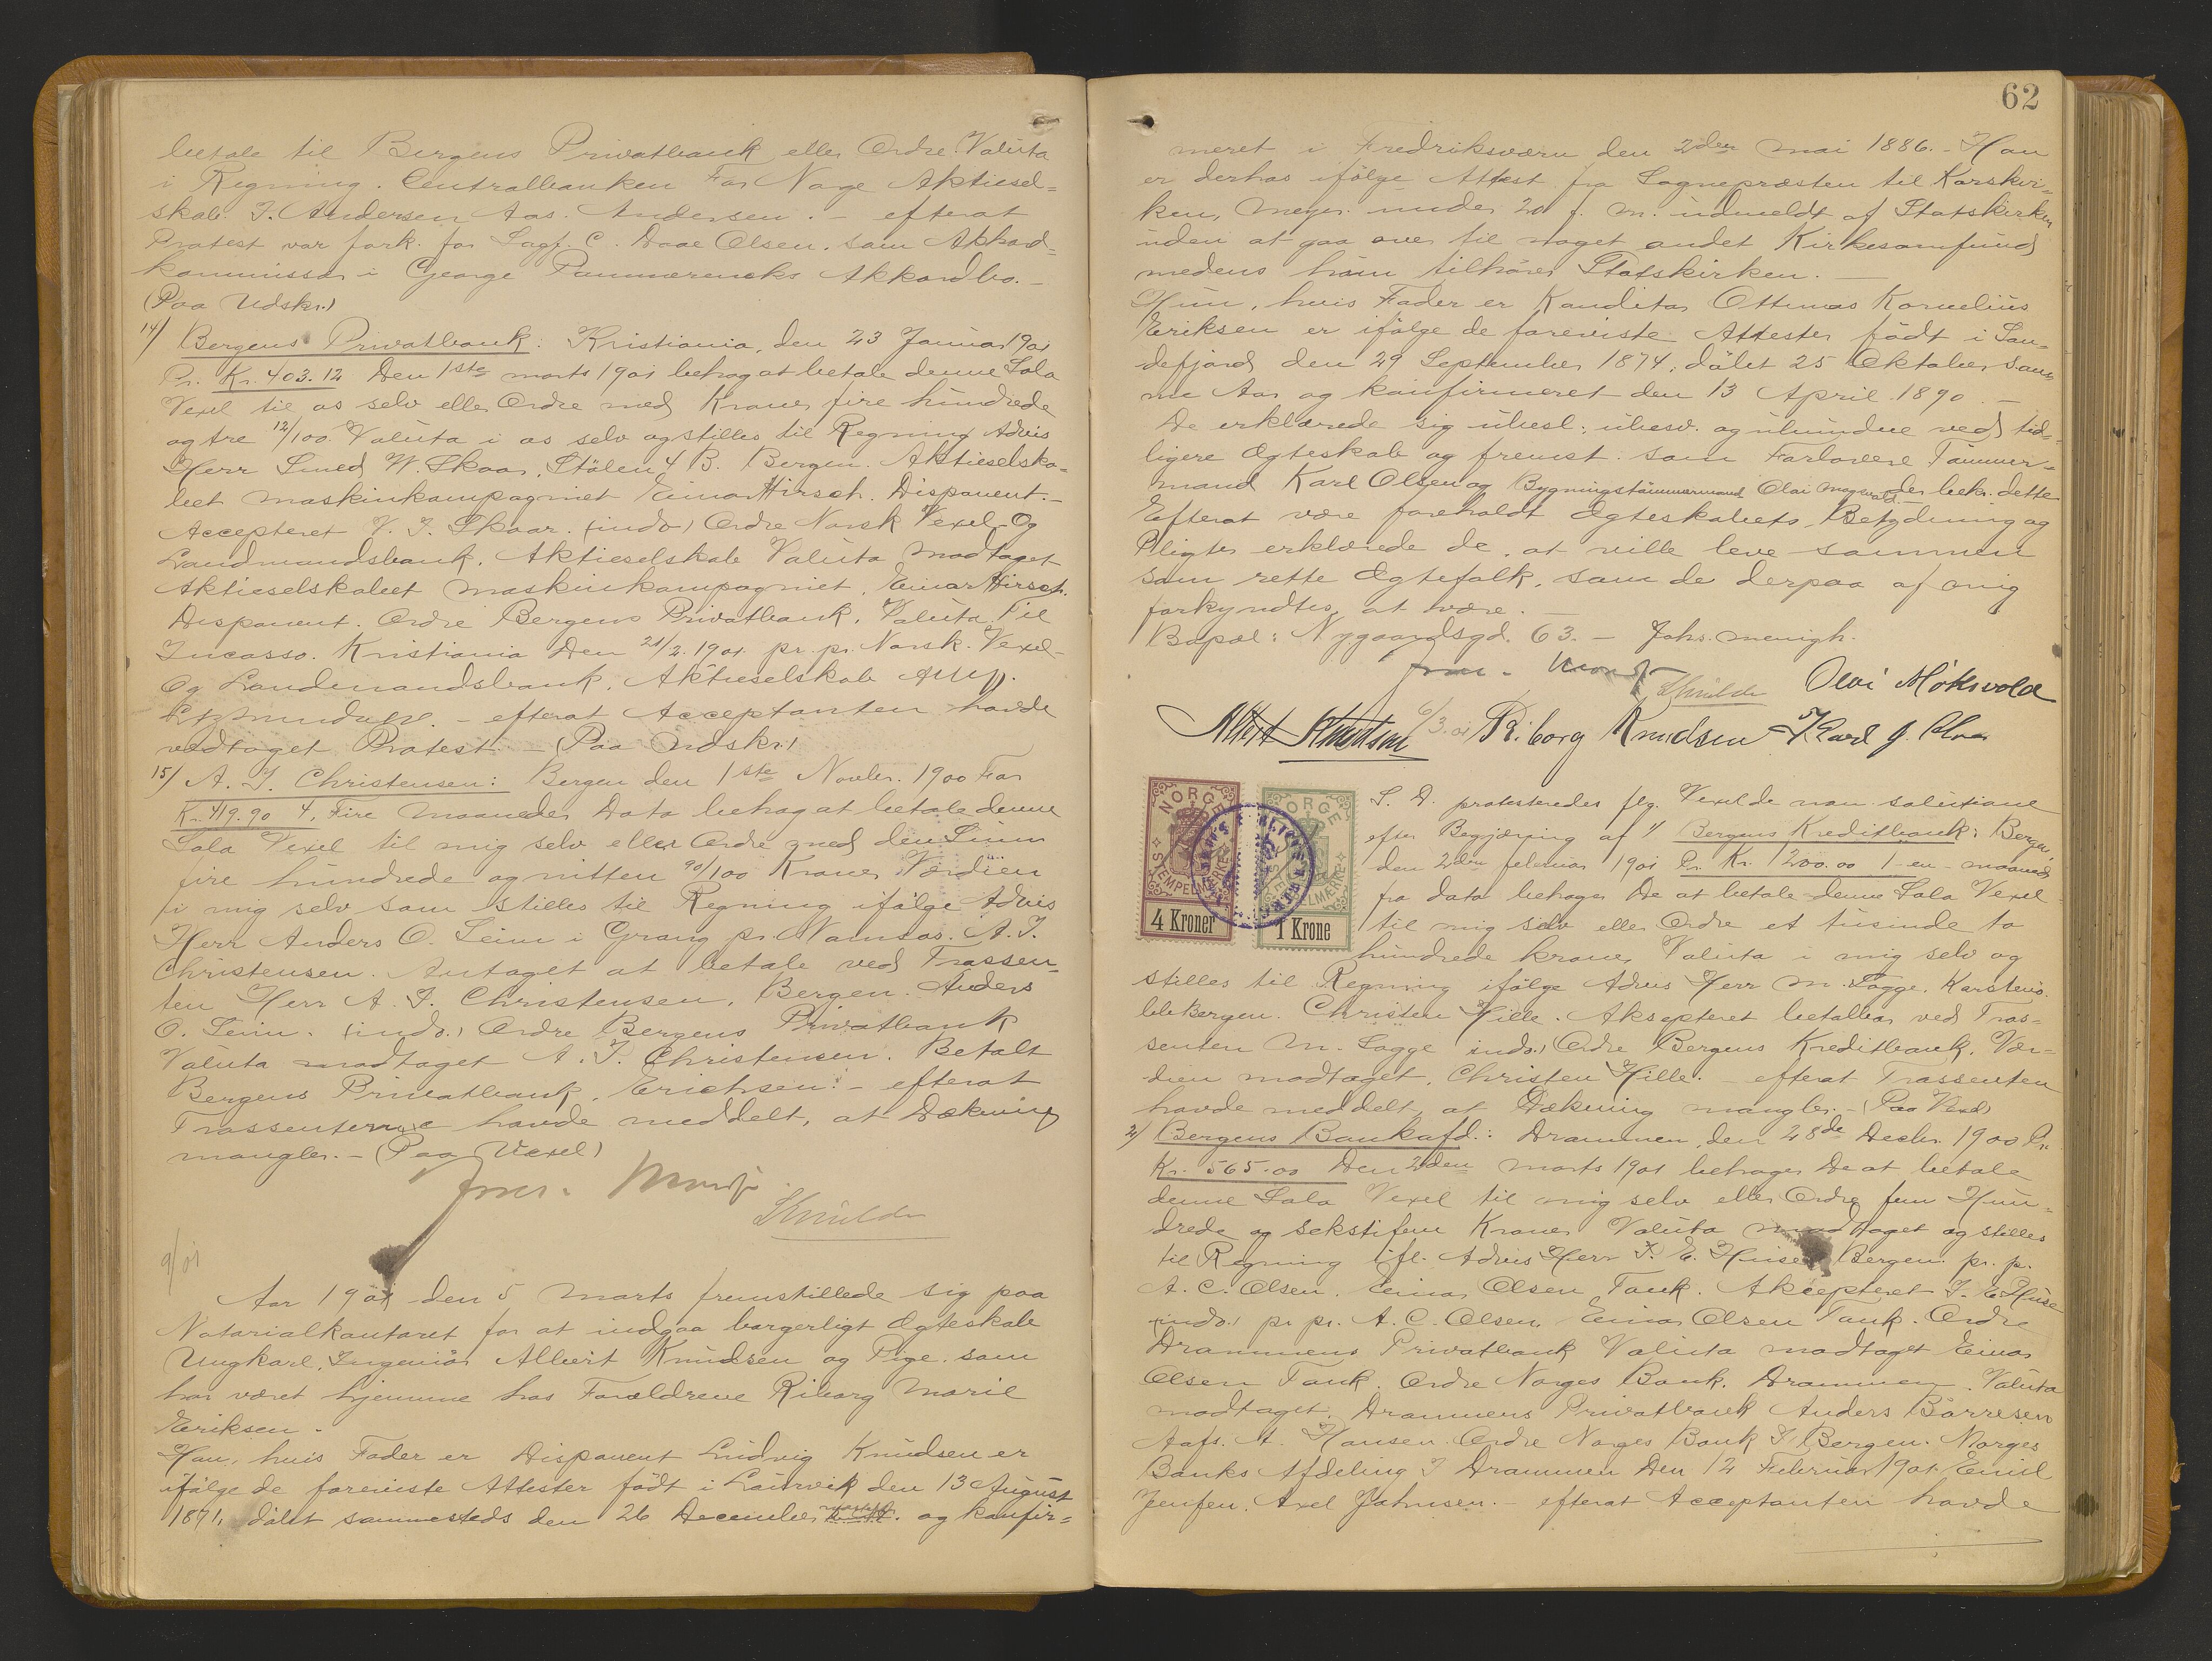 betale til Bergens Privatbank eller Ordre Valuta
i Regning. Centralbanken For Norge Aktiesel=
skab. I. Andersen Aas. Andersen. - efterat
Protest var fork. for Sagf. C. Daae Olsen, som Akkord=
kommissær i George Pammerencks Akkordbo. -
(Paa Udskr.)
14) Bergens Privatbank: Kristiania, den 23 Januar 1901
Pr. Kr. 403.12 Den 1ste marts 1901 behag at betale denne Sola
Vexel til os selv eller Ordre med Kroner fire hundrede
og tre 12/100 Valuta i os selv og stilles til Regning Advis
Herr Smed W. Skaar, Stölen 4 B. Bergen. Aktieselska-
bet maskinkompagniet Einar Hirsch. Disponent. -
Accepteret V. I. Skaar. (indo) Ordre Norsk Vexel Og
Landmandsbank, Aktieselskab Valuta Modtaget
Aktieselskabet maskinkompagniet, Einar Hirsch.
Disponent. Ordre Bergens Privatbank, Valuta Til
Incasso. Kristiania Den 21/2 1901. pr. pr. Norsk Vexel-
Og Landmandsbank, Aktieselskab
- efterat Acceptanten havde
vedtaget Protest. - (Paa Udskr.)
15) A. J. Christensen: Bergen den 1ste Novbr. 1900 For
Kr. 419.90 4, Fire Maaneder Dato behag at betale denne
Sola Vexel til mig selv eller Ordre med den Sum
fire hundrede og nitten 90/100 Kroner Værdien
i mig selv som stilles til Regning ifølge Advis
Herr Anders O. Seim i Grong pr. Namsos. A. J.
Christensen. Antaget at betale ved Trassen=
ten Herr A. J. Christensen, Bergen. Anders
O. Seim. (indo.) Ordre Bergens Privatbank
Valuta modtaget A. J. Christensen. Betalt
Bergens Privatbank, Erichsen: - efterat
Trassenterne havde meddelt, at Dækning
mangler. - (Paa Vexel)
9/01
Aar 1901 den 5 Marts fremstillede sig paa
Notarialkontoret for at indgaa borgerligt Ægteskab
Ungkarl, Ingeniør Albert Knudsen og Pige, som
har været hjemme hos Forældrene Riborg Marie
Eriksen.
Han, hvis Fader er Disponent Ludvig Knudsen er
ifølge de foreviste Attester født i Laurvik den 13 August
1871, døbt sammesteds den 26 December næstefter. og konfir=
62
meret i Fredriksværn den 2den Mai 1886. - Han
er derhos ifølge Attest fra Sognepræsten til Korskir=
ken, Meyer under 20 f. M. udmeldt af Statskirken
uden at gaa over til noget andet Kirkesamfund
medens hun tilhører Statskirken. -
Hun, hvis Fader er Konditor Ottmas Kornelius
Eriksen er ifølge de foreviste Attester født i San-
defjord den 29 September 1874, døbt 25 Oktober sam-
me Aar og konfirmeret den 13 April 1890. -
De erklærede sig ubesl. ubesv. og ubundne ved tid=
ligere Ægteskab og fremst. som Forlovere Tømmer-
mand Karl Olsen og Bygningstømmermand Olai Mogsvold - der bekr. dette
Efterat være foreholdt Ægteskabets Betydning og
Pligter erklærede de, at ville leve sammen
som rette Ægtefolk, som de derpaa af mig
forkyndtes at være. -
Bopæl: Nygaardsgd. 63. - Johs. menigh.
Olai Moksvold
Albert Knudsen 6/3.01 Riborg Knudsen Karl J. Olsen
NORGE STEMPELMERKE 4 Kroner
NORGE STEMPELMERKE 1 Krone
S. D. protesteredes flg. Vexel de non solutione
efter Begjæring af 1) Bergens Kreditbank: Bergen,
den 2den februar 1901 Pr. Kr. 1200.00 1 - en - maaned
fra dato behager De at betale denne Sola Vexel
til mig selv eller Ordre et tusinde to
hundrede kroner Valuta i mig selv og
stilles til Regning ifølge Advis Herr M. Sagge, Karstens.
Bergen. Christen Hille. Aksepteret betalbar ved Tras=
senten M. Sagge indo.) Ordre Bergens Kreditbank. Vær=
dien modtaget, Christen Hille. - efterat Trassenten
havde meddelt, at Dækning mangler. - (Paa Vexel)
2) Bergens Bankafd.: Drammen, den 28de Decbr. 1900 Pr.
Kr. 565.00 Den 2den marts 1901 behager De at betale
denne Sola Vexel til mig selv eller Ordre fem Hun=
drede og sekstifem Kroner Valuta modtaget og stilles
til Regning ifl. Advis Herr I. E. Huse Bergen. pr. pr.
A. C. Olsen. Einar Olsen Tank. Aksepteret I. E. Huse
(indo.) pr. pr. A. C. Olsen, Einar Olsen Tank. Ordre
Drammens Privatbank Valuta modtaget Einar
Olsen Tank. Ordre Norges Bank. Drammen. Valuta
modtaget. Drammens Privatbank Anders Børresen
Aafs. A. Hansen. Ordre Norges Bank I Bergen. Norges
Banks Afdeling I Drammen Den 12 Februar 1901. Emil
Jensen. Axel Johnsen. - efterat Acceptanten havde